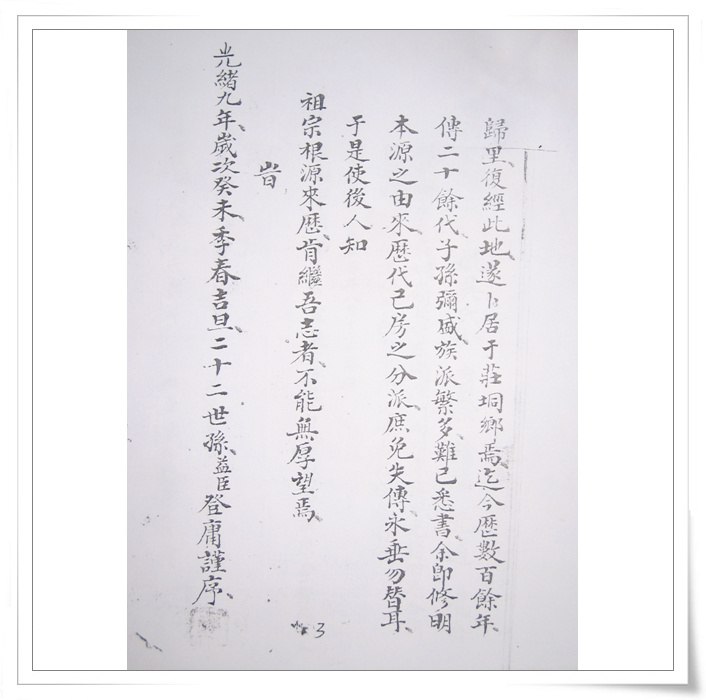 歸里、復經此地、遂卜居于莊垌鄉焉、迄今歷數百餘年、
傳二十餘代、子孫彌盛、族派繁多、難已悉書、余即修明
本源之由來、歷代己房之分派、庶免失傳、永垂勿替耳、
于是使後人知
祖宗根源來歷、肯繼吾志者、不能無厚望焉、
旹
光緒九年、歲次癸未季春吉旦、二十二世孫、益臣登庸謹序、
3